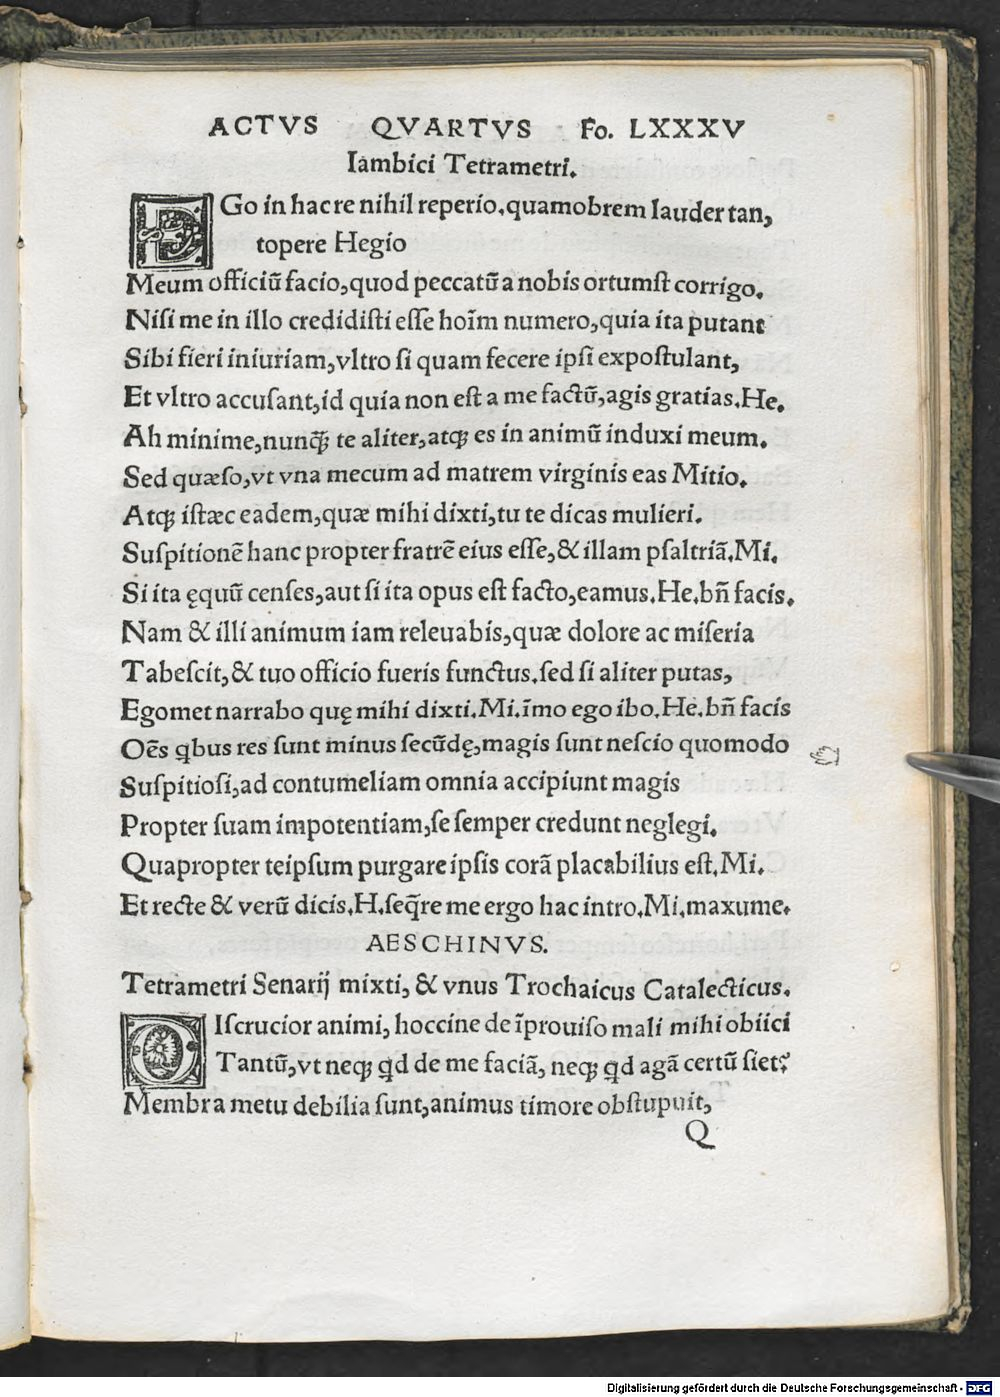 ACTVS QVARTVS Fo. LXXXV
Iambici Tetrametri.
EGo in hac re nihil reperio, quamobrem lauder tan,
topere Hegio
Meum officiũ facio, quod peccatũ a nobis ortumſt corrigo.
Niſi me in illo credidiſti eſſe hoĩm numero, quia ita putant
Sibi fieri iniuriam, vltro ſi quam fecere ipſi expoſtulant,
Et vltro accuſant, id quia non eſt a me factũ, agis gratias. He.
Ah minime, nunq̃ te aliter, atqꝫ es in animũ induxi meum.
Sed quæſo, vt vna mecum ad matrem virginis eas Mitio.
Atqꝫ iſtæc eadem, quæ mihi dixti, tu te dicas mulieri.
Suſpitionẽ hanc propter fratrẽ eius eſſe, & illam pſaltriã. Mi.
Si ita ęquũ cenſes, aut ſi ita opus eſt facto, eamus. He. bñ facis.
Nam & illi animum iam releuabis, quæ dolore ac miſeria
Tabeſcit, & tuo officio fueris functus. ſed ſi aliter putas,
Egomet narrabo quę mihi dixti. Mi. ĩmo ego ibo. He. bñ facis
Oẽs qbus res ſunt minus ſecũdę, magis ſunt neſcio quomodo
Suſpitioſi, ad contumeliam omnia accipiunt magis
Propter ſuam impotentiam, ſe ſemper credunt neglegi.
Quapropter teipſum purgare ipſis corã placabilius eſt. Mi.
Et recte & verũ dicis. H. ſeq̃re me ergo hac intro. Mi. maxume.
AESCHINVS.
Tetrametri Senarij mixti, & vnus Trochaicus Catalecticus.
DIſcrucior animi, hoccine de ĩprouiſo mali mihi obiici
Tantũ, vt neqꝫ qd de me faciã, neqꝫ qd agã certũ ſiet?
Membra metu debilia ſunt, animus timore obſtupuit,
Q
Digitalisierung gefördert durch die Deutsche Forschungsgemeinschaft - DFG